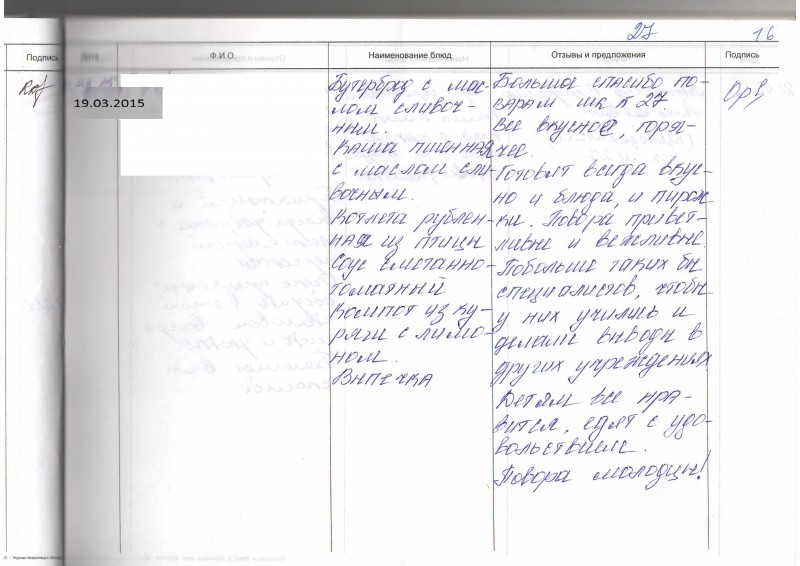 27 16
Подпись Ф.И.О. Наименование блюд Отзывы и предложения Подпись
19.03.2015
Бутерброд с мас-
лом сливоч-
ным.
Каша пшенная
с маслом сли-
вочным.
Котлета рублен-
ная из птицы
Соус сметанно-
томатный
Компот из ку-
раги с лимо-
ном.
Выпечка
Большое спасибо по-
варам шк № 27.
Все вкусное, горя-
чее.
Готовят всегда вкус-
но и блюда, и пирож-
ки. Повора привет-
ливые и вежливые.
Побольше таких бы
специалистов, чтобы
у них учились и
делали выводы в
других учреждениях
Детям все нра-
вится, едят с удо-
вольствием.
Повора молодцы!